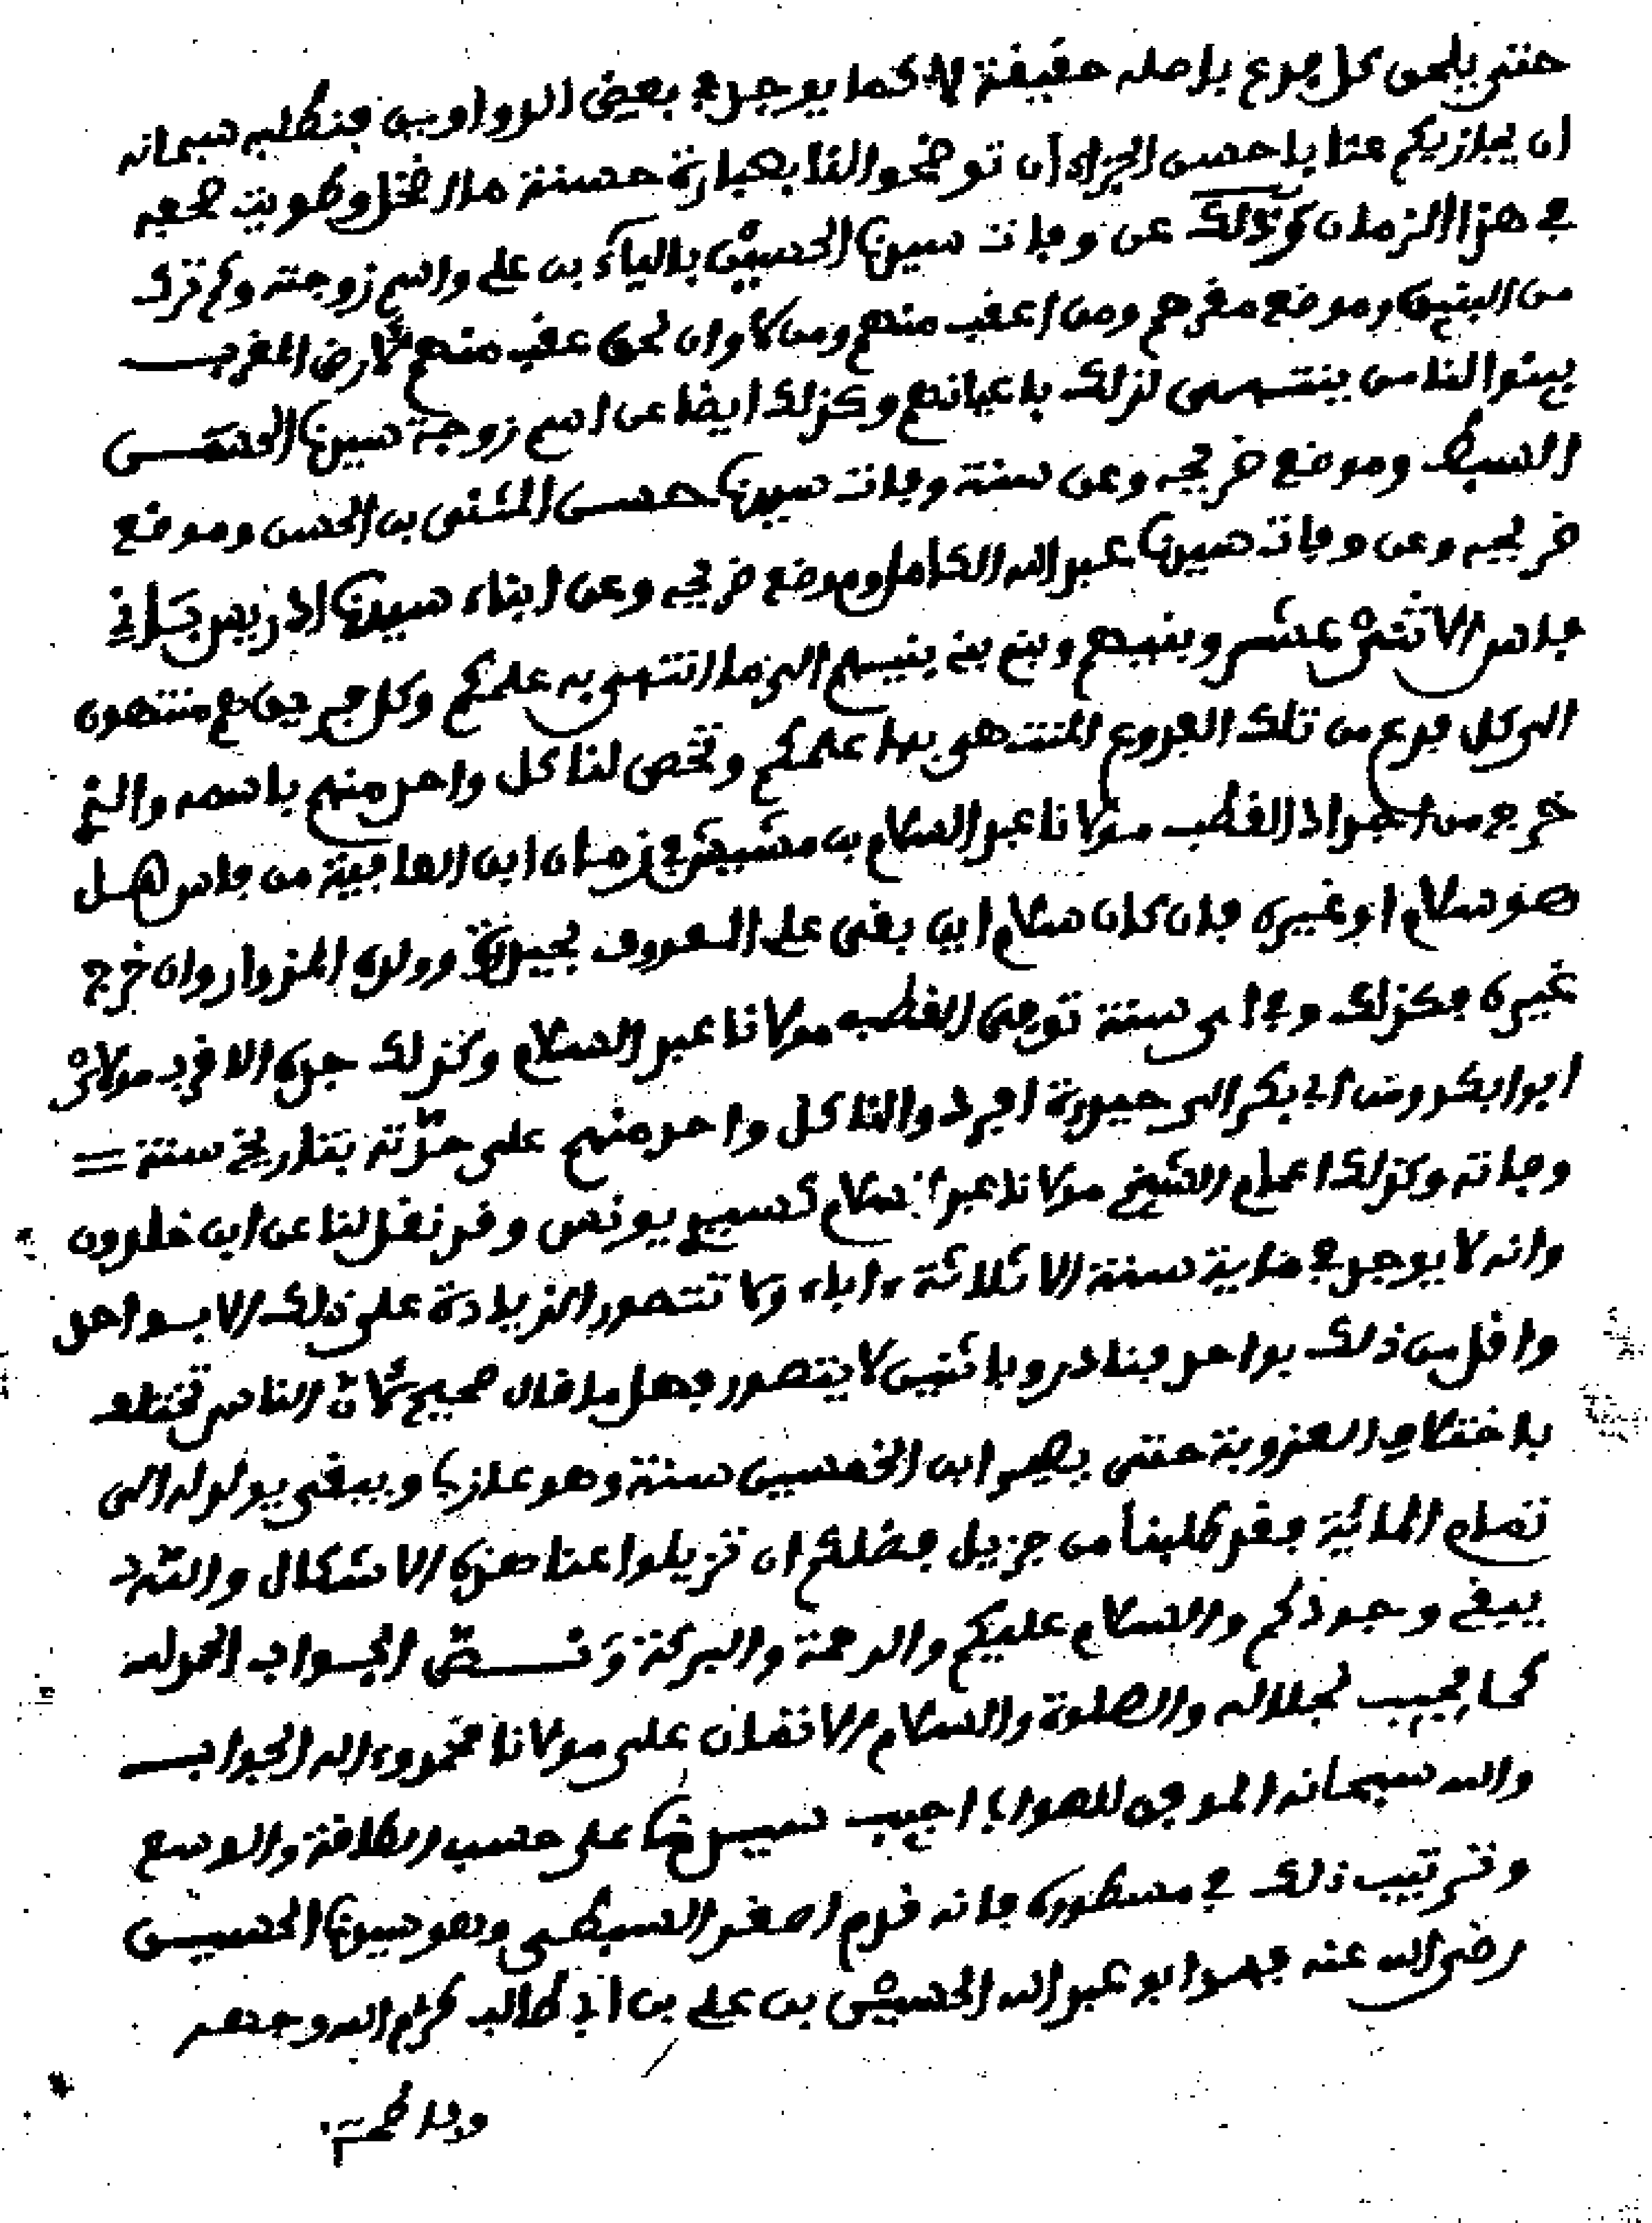 حتى يلحق كل فرع باصله حقيقة لا كما يوجد في بعض الدواوين فنطلبه سبحانه
ان يجازيكم عنا باحسن الجزاء ان توضحوا لنا بعبارة حسنة ما اضمحل وطويت صحفه
في هذا الزمان وكذلك عن وفات سيدنا الحسين بالياء بن علي واسم زوجته وكم ترك
من البنين وموضع مقرهم ومن اعقب منهم ومن لا وان لحق عقب منهم لارض المغرب
بينوا لناس ينتهى لذلك باعيانهم وكذلك ايضا عن اسم زوجة سيدنا الحسن
السبط وموضع ضريحه وعن سنة وفات سيدنا حسن المثنى بن الحسن وموضع
ضريحه وعن وفات سيدنا عبد الله الكامل وموضع ضريحه وعن ابناء سيدنا ادريس باني
فاس الاثنى عشر وبنيهم وبنى بنيهم الى ما انتهى به علمكم وكل فريق مع منتهون
الى كل فرع من تلك الفروع المنتهى بها علمكم وتخص لنا كل واحد منهم باسمه والذي
خرج من اجداد القطب مولانا عبد السلام بن مشيش في زمان ابن العافية من فاس هل
هو سلام او غيره فان كان سلام اين بقى علي المعروف بحيدرة وولده المزوار وان خرج
غيره فكذلك وفي اى سنة توفى القطب مولانا عبد السلام وكذلك جده الاقرب مولاي
ابوا بكر ومن ابي بكر الى حيدرة افردوا لنا كل واحد منهم على حدته بتاريخ سنة =
وفاته وكذلك اعمام الشيخ مولانا عبد السلام كسيدي يونس وقد نقل لنا عن ابن خلدون
وانه لا يوجد في ماية سنة الا ثلاثة ءاباء ولا تتصور الزيادة على ذلك الا بواحد
واقل من ذلك بواحد فنادر وباثنين لا يتصور فهل ما قال صحيح لان الناس تختلف
باختلاف العزوبة حتى يصير ابن الخمسين سنة وهو عازبا ويبقى يولد له الى
تمام المائية فقد طلبنا من جزيل فضلكم ان تزيلوا عنا هذه الاشكال والله
يبقي وجودكم والسلام عليكم والرحمة والبركة ونص الجواب الحمد لله
كما يجب لجلاله والصلوة والسلام الاتمان على مولانا محمد وءاله الجواب
والله سبحانه الموفق للصواب اجيب سيدنا على حسب الطاقة والوسع
وترتيب ذلك في مسطوره فانه قدم اصغر السبطين وهو سيدنا الحسين
رضى الله عنه فهو ابو عبد الله الحسين بن علي بن ابي طالب كرم الله وجهه
وفاطمة